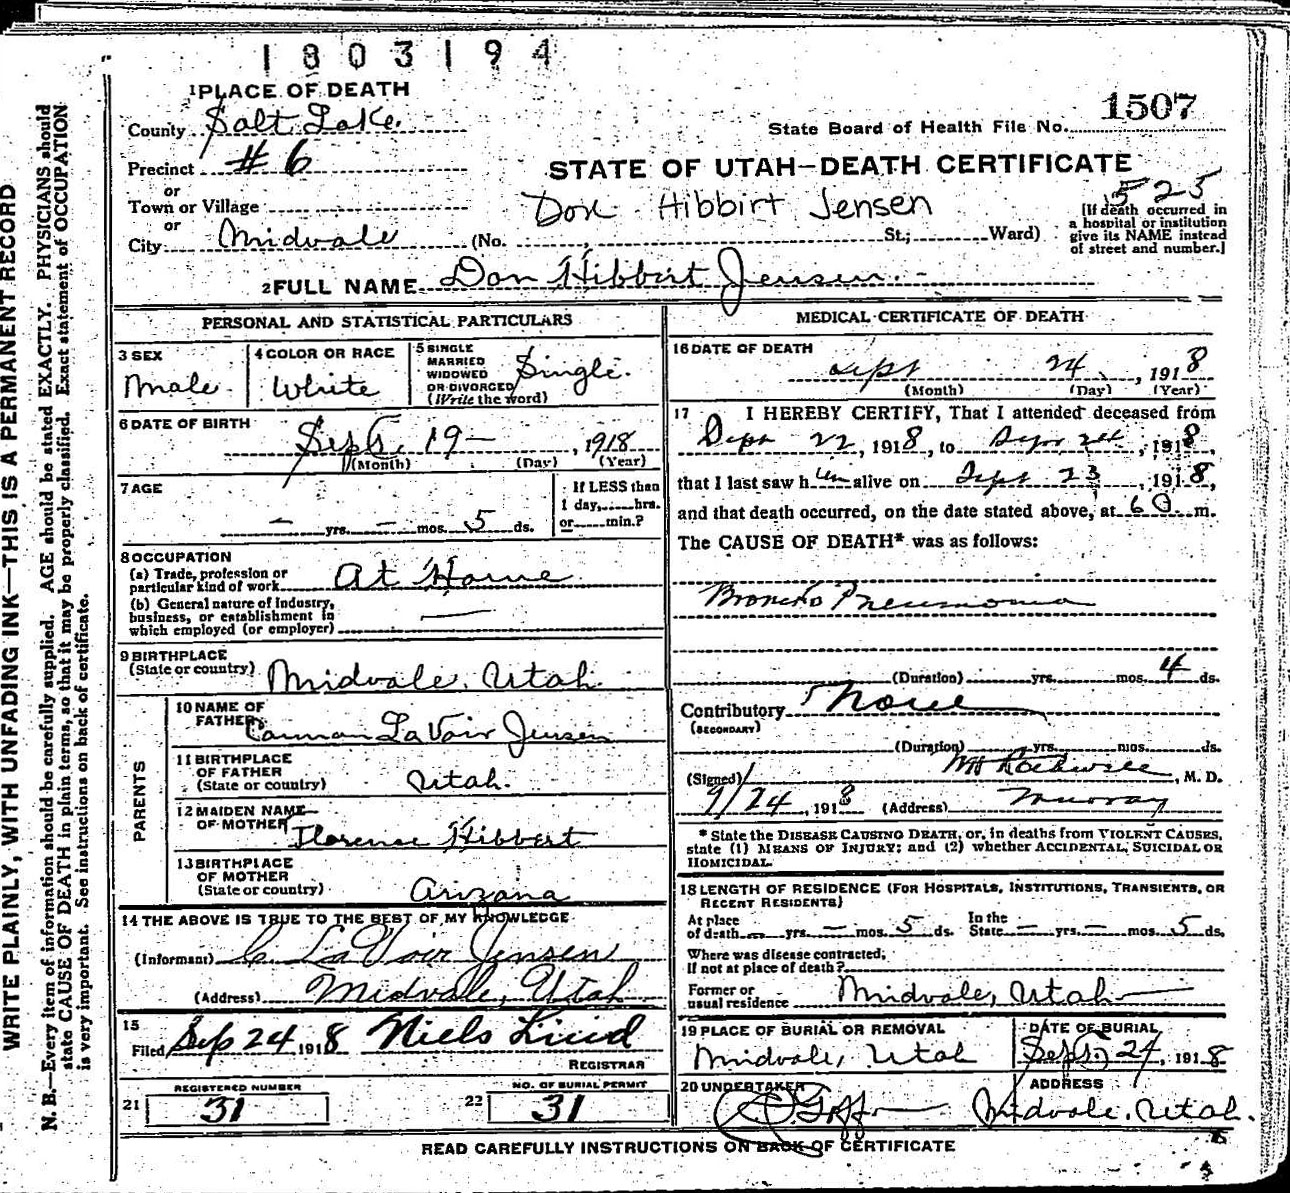 1803194
1 PLACE OF DEATH
1507
County Salt Lake.
State Board of Health File No.
Precinct #6
STATE OF UTAH—DEATH CERTIFICATE
or
Town or Village
Don Hibbirt Jensen
525
or
City Midvale (No. St.; Ward)
[If death occurred in
a hospital or institution
give its NAME instead
of street and number.]
2 FULL NAME Don Hibbirt Jensen.
PERSONAL AND STATISTICAL PARTICULARS
3 SEX
Male.
4 COLOR OR RACE
White
5 SINGLE
MARRIED
WIDOWED
OR DIVORCED
(Write the word)
Single.
6 DATE OF BIRTH
Sept. 19— , 1918
(Month) (Day) (Year)
7 AGE
— yrs. — mos. 5 ds.
If LESS than
1 day, hrs.
or min.?
8 OCCUPATION
(a) Trade, profession or
particular kind of work At Home
(b) General nature of Industry,
business, or establishment in
which employed (or employer) —
9 BIRTHPLACE
(State or country) Midvale, Utah
PARENTS
10 NAME OF
FATHER Carman LaVoir Jensen
11 BIRTHPLACE
OF FATHER
(State or country) Utah.
12 MAIDEN NAME
OF MOTHER Florence Hibbert
13 BIRTHPLACE
OF MOTHER
(State or country) Arizana
14 THE ABOVE IS TRUE TO THE BEST OF MY KNOWLEDGE
(Informant) C LaVoir Jensen
(Address) Midvale, Utah
15
Filed Sep 24 1918 Niels Lind
REGISTRAR
REGISTERED NUMBER
21 31
NO. OF BURIAL PERMIT
22 31
MEDICAL CERTIFICATE OF DEATH
16 DATE OF DEATH
Sept 24, 1918
(Month) (Day) (Year)
17 I HEREBY CERTIFY, That I attended deceased from
Sept 22, 1918, to Sept 24, 1918,
that I last saw him alive on Sept 23, 1918,
and that death occurred, on the date stated above, at 6 m.
The CAUSE OF DEATH* was as follows:
Broncho Pneumonia
(Duration) yrs. mos. 4 ds.
Contributory None
(SECONDARY)
(Duration) yrs. mos. ds.
(Signed) Rockwell, M. D.
9/24, 1918 (Address) Murray
* State the DISEASE CAUSING DEATH, or, in deaths from VIOLENT CAUSES,
state (1) MEANS OF INJURY; and (2) whether ACCIDENTAL, SUICIDAL OR
HOMICIDAL.
18 LENGTH OF RESIDENCE (FOR HOSPITALS, INSTITUTIONS, TRANSIENTS, OR
RECENT RESIDENTS)
At place
of death — yrs. — mos. 5 ds. In the
State — yrs. — mos. 5 ds.
Where was disease contracted,
if not at place of death?
Former or
usual residence Midvale, Utah
19 PLACE OF BURIAL OR REMOVAL
Midvale, Utah
DATE OF BURIAL
Sept. 24, 1918
20 UNDERTAKER
Goff
ADDRESS
Midvale, Utah.
READ CAREFULLY INSTRUCTIONS ON BACK OF CERTIFICATE
WRITE PLAINLY, WITH UNFADING INK—THIS IS A PERMANENT RECORD
N. B.—Every item of information should be carefully supplied. AGE should be stated EXACTLY. PHYSICIANS should
state CAUSE OF DEATH in plain terms, so that it may be properly classified. Exact statement of OCCUPATION
is very important. See instructions on back of certificate.